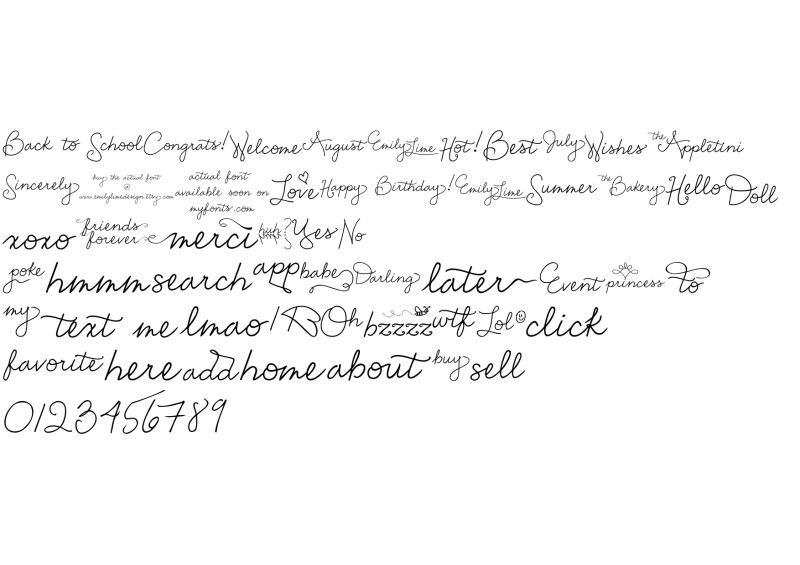 Back to School Congrats! Welcome August Emily Lime Hot! Best July Wishes the Appletini
Sincerely buy the actual font @ www.emilylimedesign.etsy.com actual font available soon on myfonts.com Love Happy Birthday! Emily Lime Summer the Bakery Hello Doll
xoxo friends forever merci huh? Yes No
poke hmmm search app babe Darling later Event princess to
my text me lmao / B Oh bzzzz wtf Lol click
favorite here add home about buy sell
0123456789